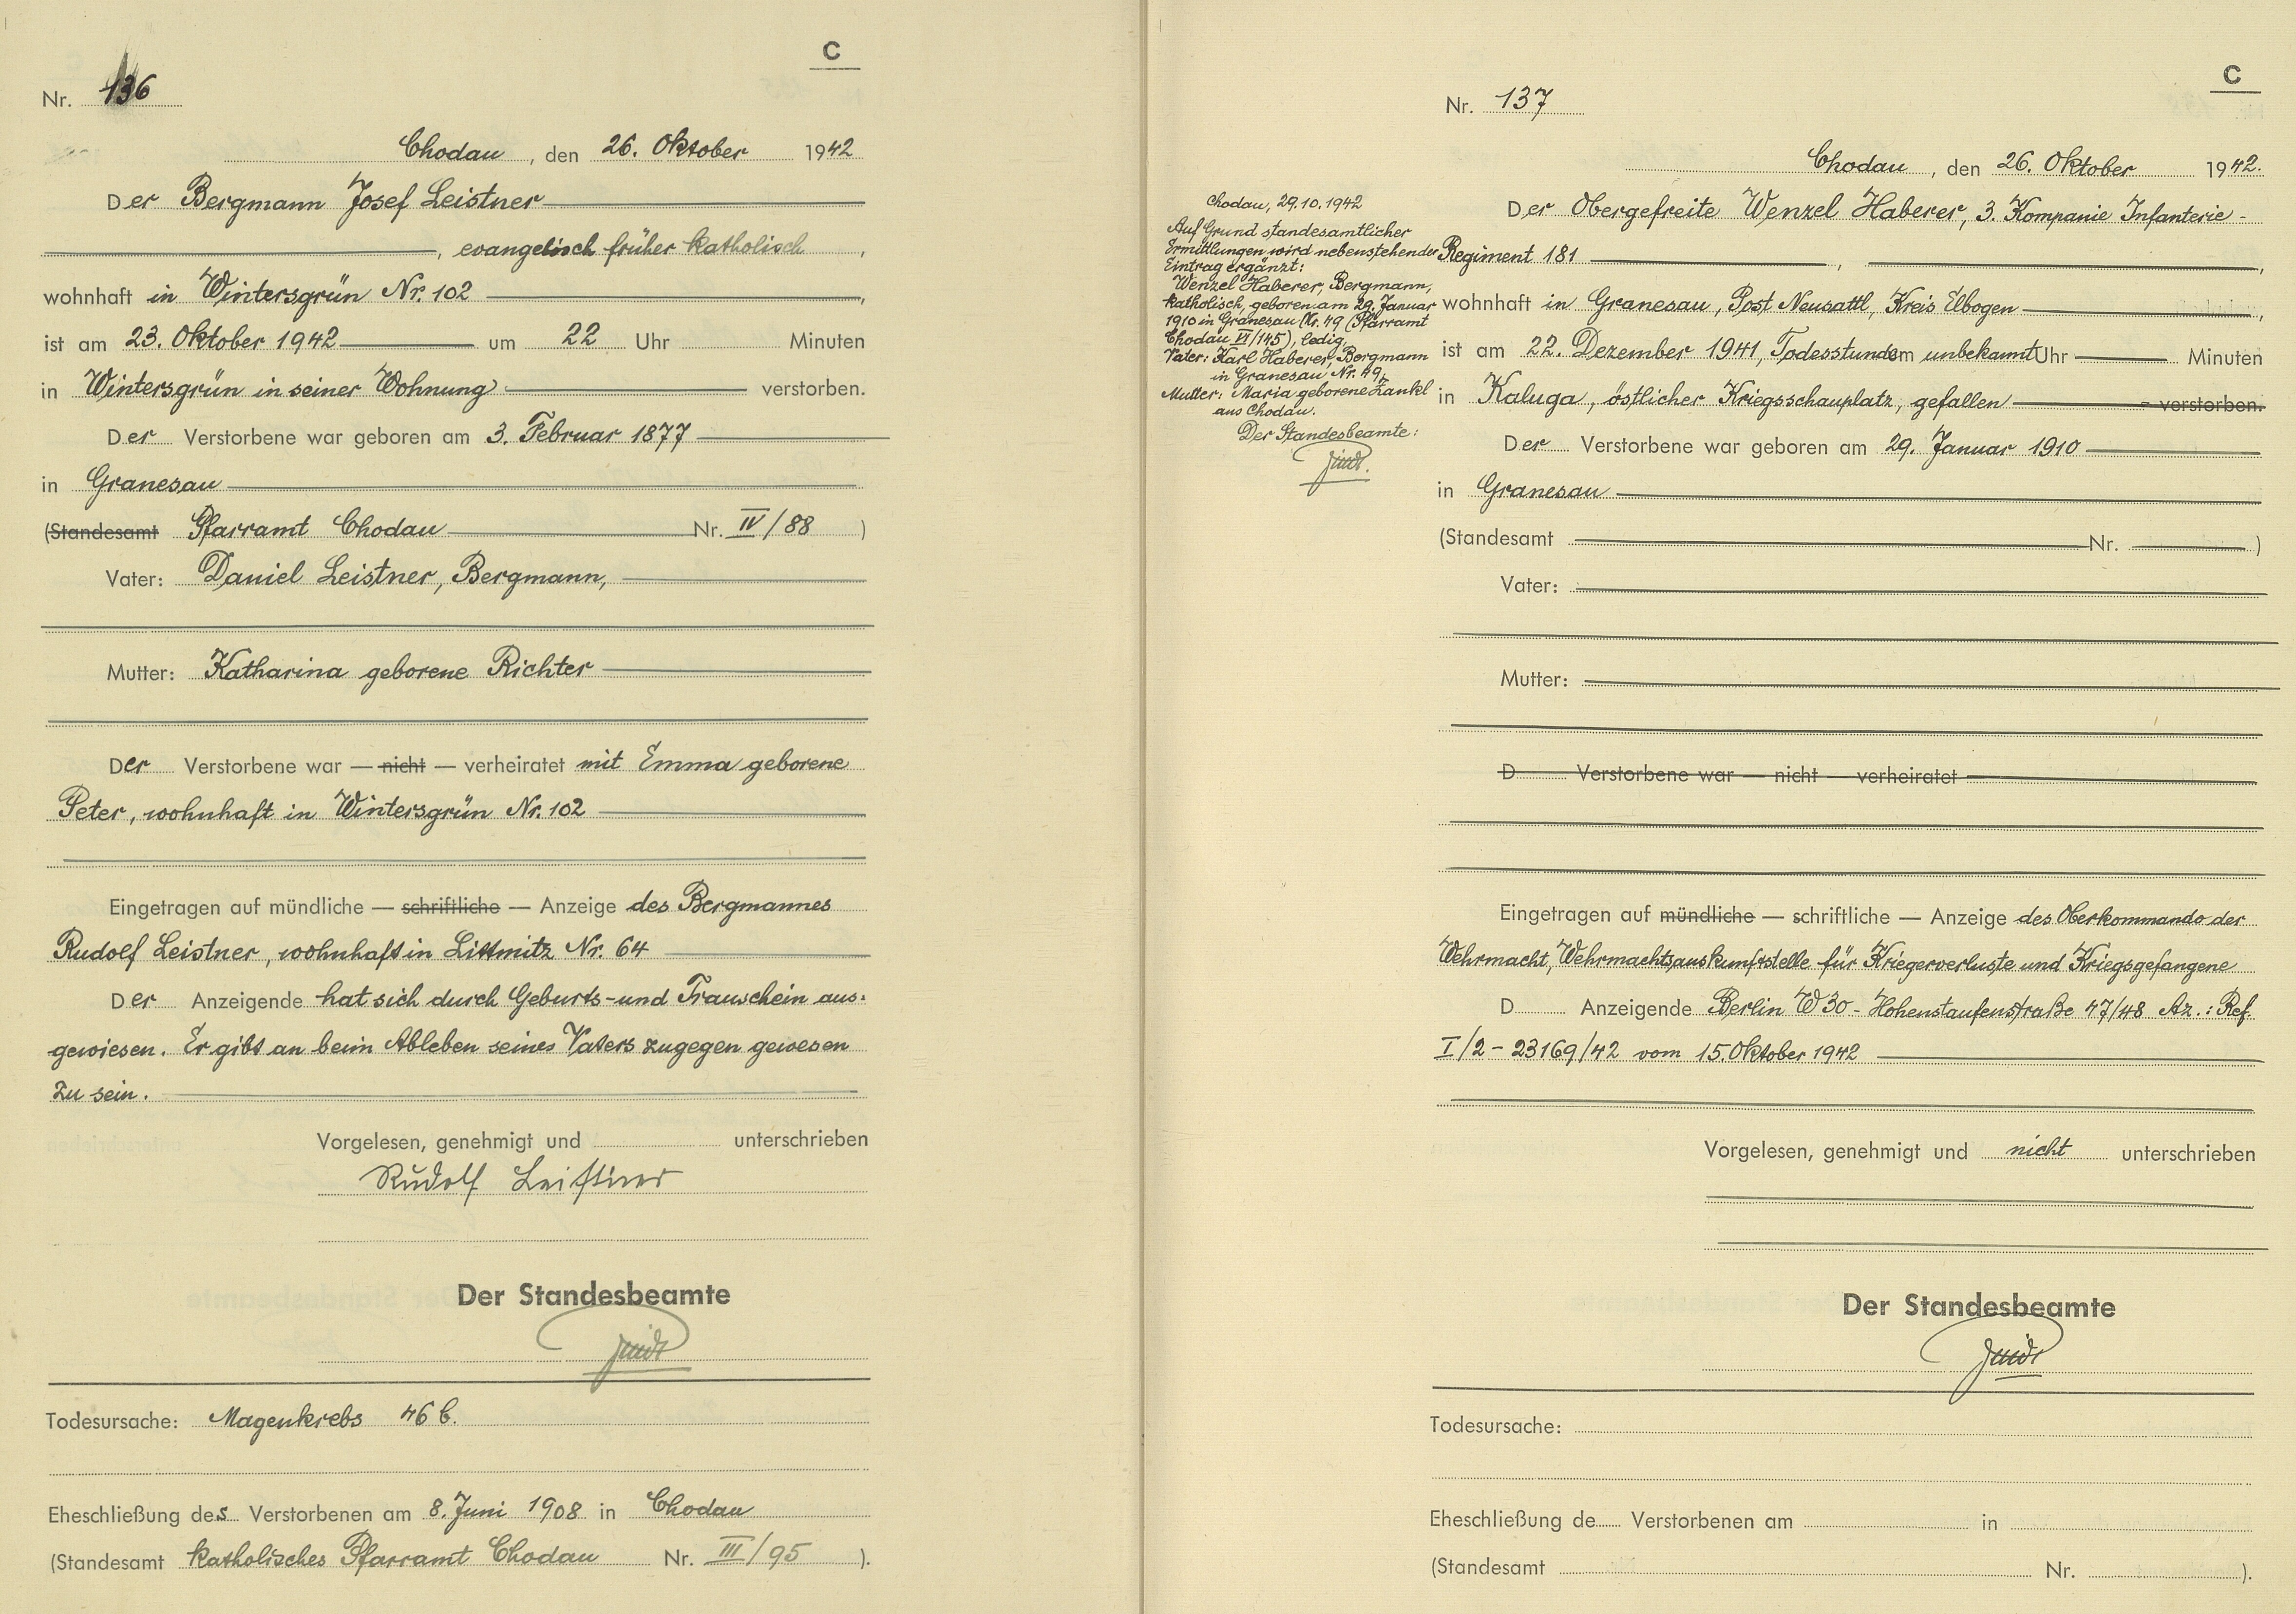 C
Nr. 136
Chodau, den 26. Oktober 1942
Der Bergmann Josef Leistner
, evangelisch früher katholisch,
wohnhaft in Wintersgrün Nr. 102,
ist am 23. Oktober 1942 um 22 Uhr Minuten
in Wintersgrün in seiner Wohnung verstorben.
Der Verstorbene war geboren am 3. Februar 1877
in Granesau
(Standesamt Pfarramt Chodau Nr. IV/88)
Vater: Daniel Leistner, Bergmann,
Mutter: Katharina geborene Richter
Der Verstorbene war — nicht — verheiratet mit Emma geborene
Peter, wohnhaft in Wintersgrün Nr. 102
Eingetragen auf mündliche — schriftliche — Anzeige des Bergmannes
Rudolf Leistner, wohnhaft in Littmitz Nr. 64
Der Anzeigende hat sich durch Geburts- und Trauschein aus-
gewiesen. Er gibt an beim Ableben seines Vaters zugegen gewesen
zu sein.
Vorgelesen, genehmigt und unterschrieben
Rudolf Leistner
Der Standesbeamte
Todesursache: Magenkrebs 46 b.
Eheschließung des Verstorbenen am 8. Juni 1908 in Chodau
(Standesamt katholisches Pfarramt Chodau Nr. III/95).
C
Nr. 137
Chodau, den 26. Oktober 1942.
Der Obergefreite Wenzel Haberer, 3. Kompanie Infanterie-
Regiment 181, ,
wohnhaft in Granesau, Post Neusattl, Kreis Elbogen,
ist am 22. Dezember 1941, Todesstunde um unbekannt Uhr Minuten
in Kaluga, östlicher Kriegsschauplatz, gefallen - verstorben.
Der Verstorbene war geboren am 29. Januar 1910
in Granesau
(Standesamt Nr. )
Vater:
Mutter:
D Verstorbene war — nicht — verheiratet
Eingetragen auf mündliche — schriftliche — Anzeige des Oberkommando der
Wehrmacht, Wehrmachtsauskunftstelle für Kriegerverluste und Kriegsgefangene
D Anzeigende Berlin W 30 - Hohenstaufenstraße 47/48 Az.: Ref.
I/2 - 23169/42 vom 15. Oktober 1942
Vorgelesen, genehmigt und nicht unterschrieben
Der Standesbeamte
Todesursache:
Eheschließung de Verstorbenen am in
(Standesamt Nr. ).
Chodau, 29.10.1942
Auf Grund standesamtlicher
Ermittlungen wird nebenstehender
Eintrag ergänzt:
Wenzel Haberer, Bergmann,
katholisch, geboren am 29. Januar
1910 in Granesau Nr. 49 (Pfarramt
Chodau VI/145), ledig,
Vater: Karl Haberer, Bergmann
in Granesau Nr. 49,
Mutter: Maria geborene Zankl
aus Chodau.
Der Standesbeamte: